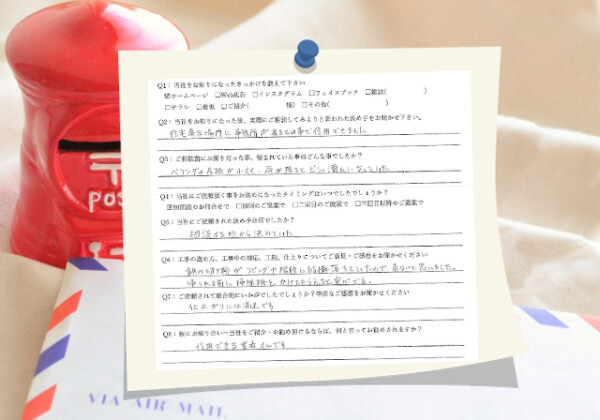 Q1：当社をお知りになったきっかけを教えて下さい
☑ホームページ □Web広告 □インスタグラム □フェイスブック □雑誌( )
□チラシ □看板 □ご紹介( 様) □その他( )
Q2：当社をお知りになった後、実際にご相談してみようと思われた決め手をお聞かせ下さい。
住宅展示場内に事務所が有るとの事で信用できました
Q3：ご相談前にお困りだった事、悩まれていた事はどんな事でしたか？
ベランダの屋根が小さく、雨が降るとビショ濡れになっていた
Q4：当社にご依頼頂く事をお決めになったタイミングはいつでしたでしょうか？
☑初回のお問合せで □初回のご提案で □二回目のご提案で □三回目以降のご提案で
Q5：当社にご依頼された決め手は何でしたか？
相談する前から決めていた
Q6：工事の進め方、工事中の対応、工期、仕上りについてご意見・ご感想をお聞かせください
鉄の切り粉がリビングや階段に結構落ちていたので、危ないと思いました。
帰られる前に掃除機をかけてもらえると安心でる。
Q7：ご依頼されて総合的にいかがでしたでしょうか？率直なご感想をお聞かせください
仕上がりには満足です
Q8：仮にお知り合いへ当社をご紹介・お勧め頂けるならば、何と言ってお勧めされますか？
信用できる業者さんです
POS
VIA AIR MAIL